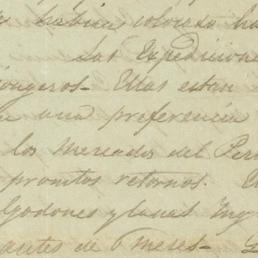 habian colocado ha
Las Expedicione
ongeros - Ellas estan
una preferencia
los mercados del Per
promtos retornos.
lgodones y lanas Ing
antes de 6 meses -